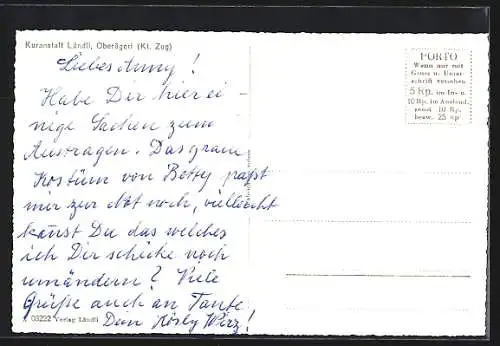 Kuranstalt Ländli, Oberägeri (Kt. Zug)
Liebes Anny!
Habe Dir hier ei-
nige Sachen zum
Austragen. Das graue
Kostüm von Betty paßt
mir zur Not noch, vielleicht
kanst Du das welches
ich Dir schicke noch
umändern? Viele
Grüße auch an Tante
Dein Rösly Wirz!
A 03222 Verlag Ländli
PORTO
Wenn nur mit
Gruss u. Unter-
schrift versehen
5 Rp. im In- u.
10 Rp. im Ausland,
sonst 10 Rp.
bezw. 25 Rp